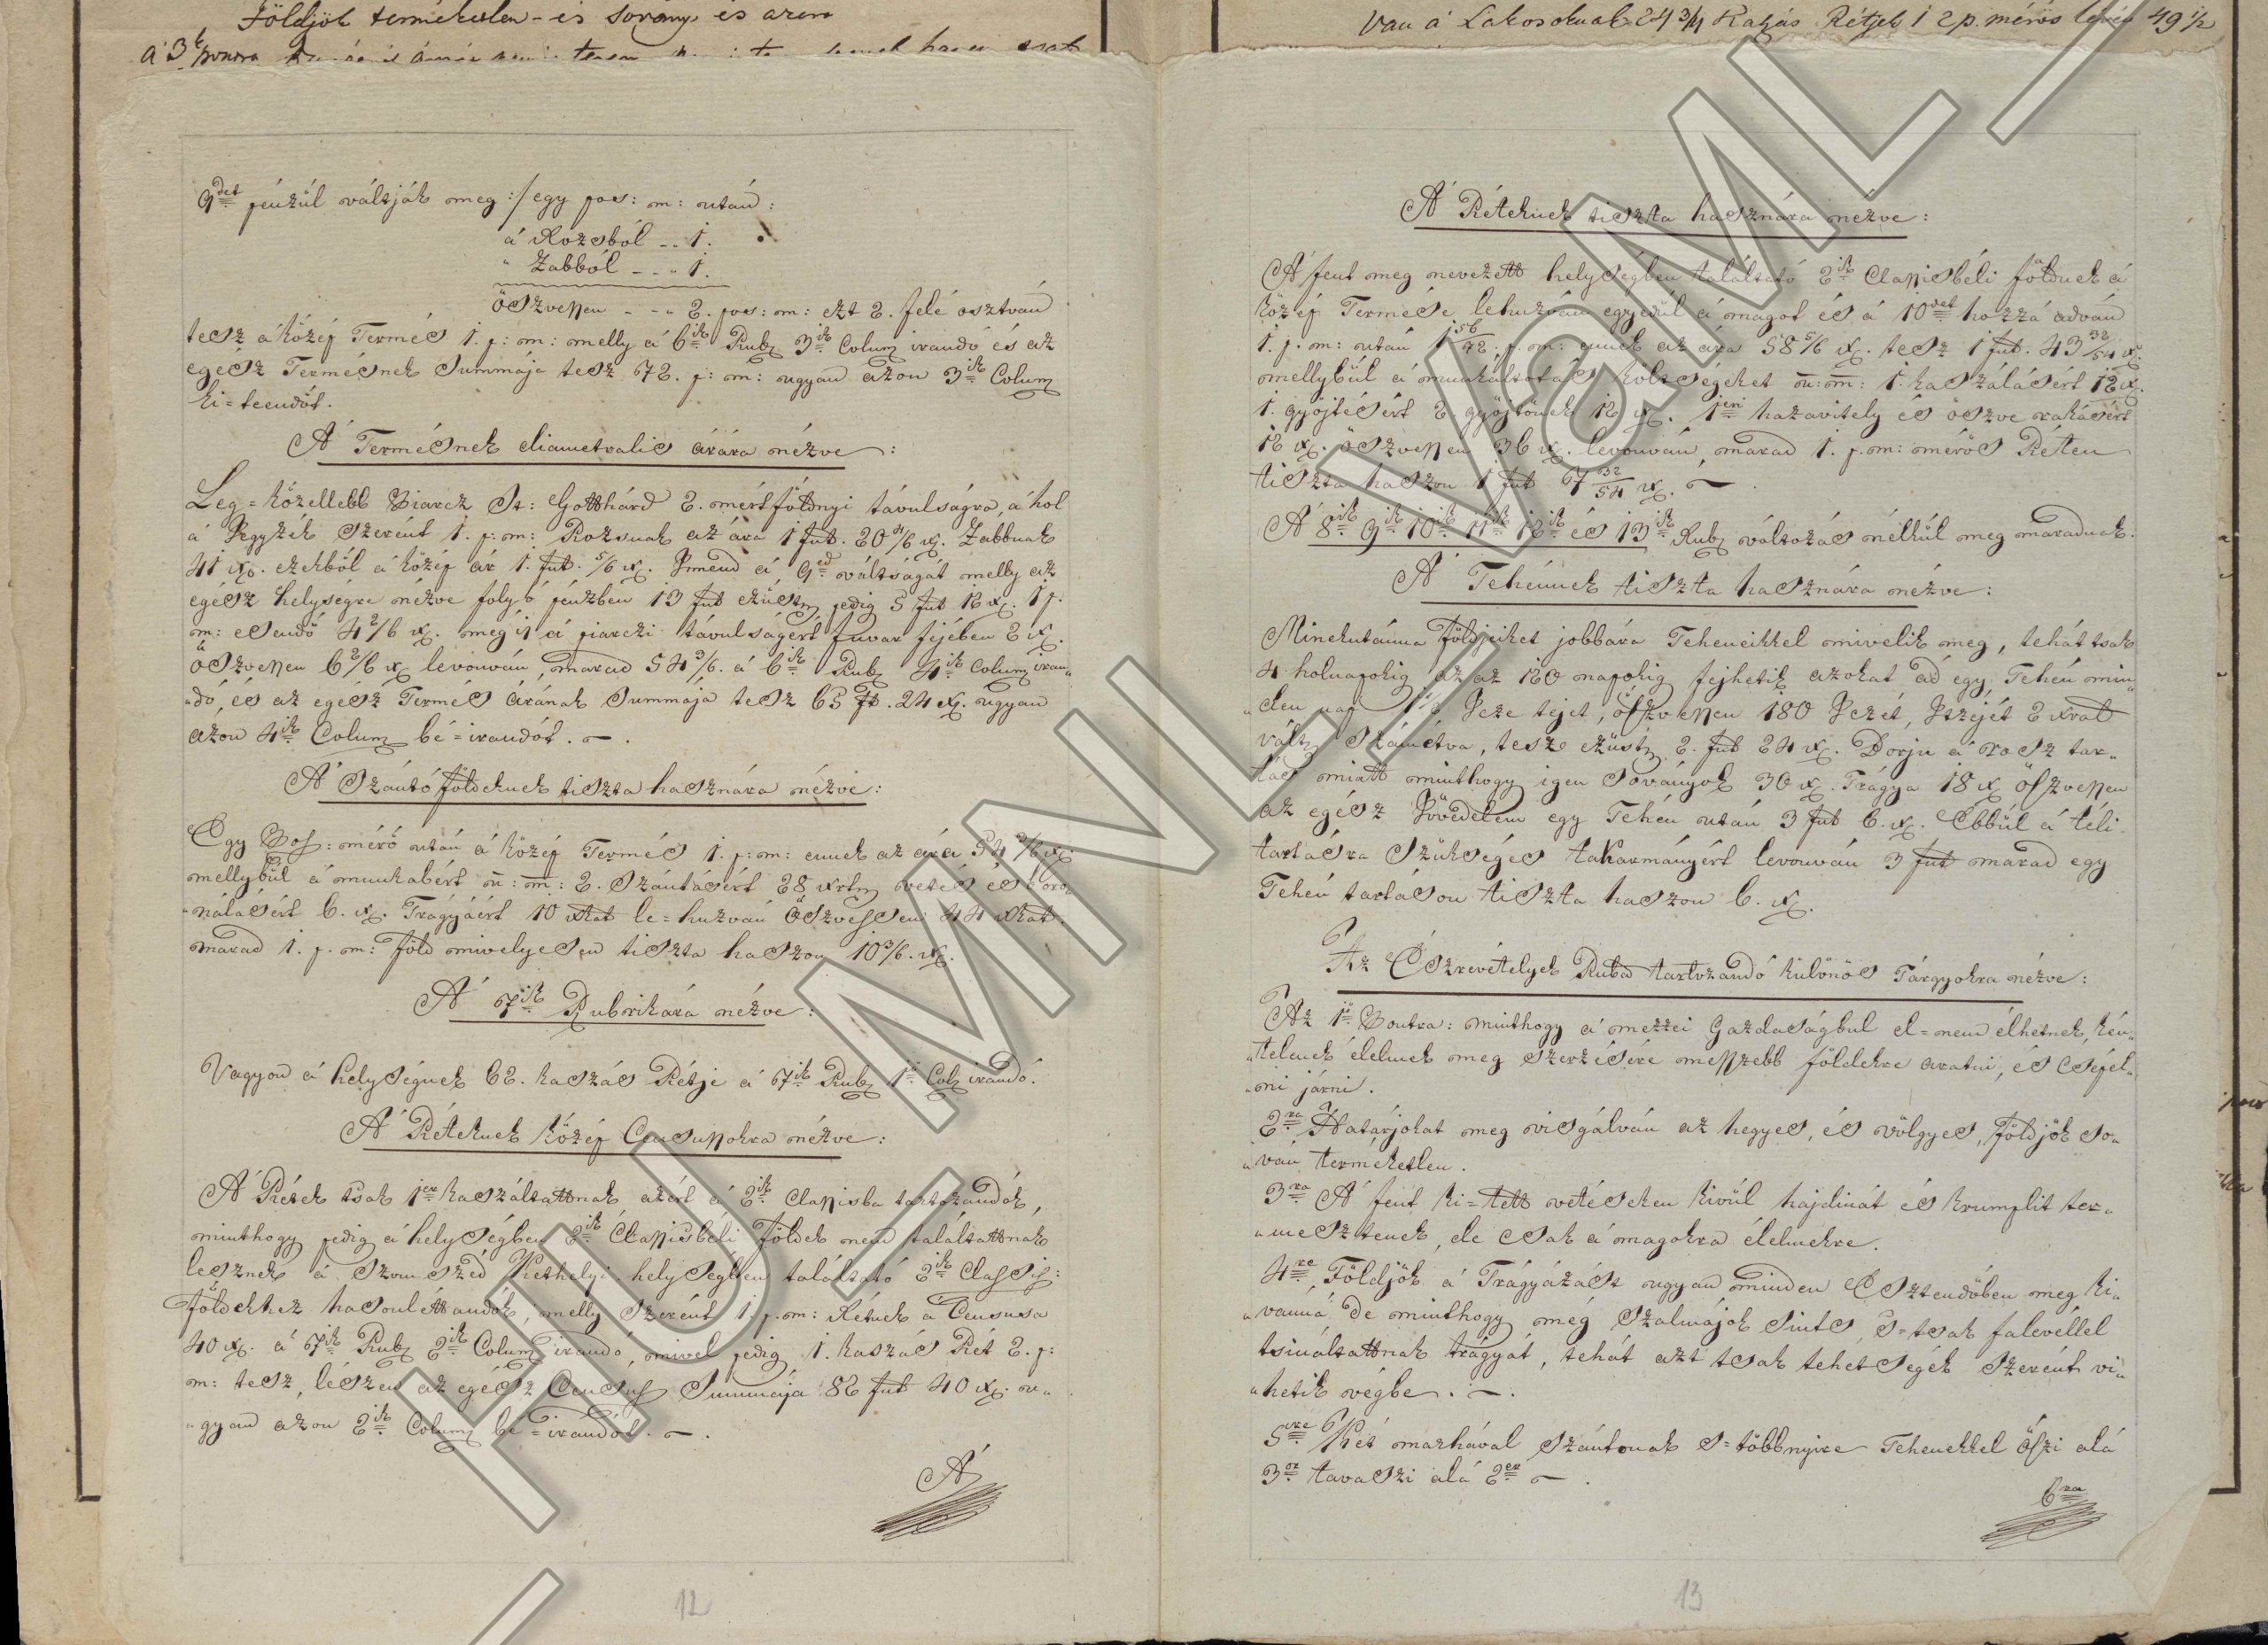 Földjök terméketlen - és sovány és aren
á 3k
9det pénzűl váltják meg :/ egy pos: m: után:
á Rozsból -- 1.
" Zabból - - " 1.
öszvessen - - " 2. pos: m: ezt 2. felé osztván
tesz á közép Termés 1. p: m: melly á 6ik Rub. 3ik Colum irandó és az
egész Termésnek Summája tesz 72. p: m: ugyan azon 3ik Colum
ki=teendőt.
Á Termésnek diametralis árára nézve:
Leg=közellebb Piarcz St: Gotthárd 2. mértföldnyi távulságra, á hol
á Jegyzék szerént 1. p: m: Rozsnak az ára 1 fut. 20 4/6 x. Zabbnak
41 x. ezekből á közép ár 1. fut. 5/6 x. Imend á 9ed váltságát melly az
egész helységre nézve folyó pénzben 13 fut ezüst pedig 5 fut 12 x. 1 p.
m: esendő 4 2/6 x. még is á piarczi távulságért fuvar fejében 2 x.
öszvessen 6 2/6 x levonván, marad 54 3/6. á 6ik Rub 4ik Colum iran"
"dó, és az egész Termés árának Summája tesz 65 ft. 24 x. ugyan
azon 4ik Colum bé=irandót. ~ .
Á Szántóföldeknek tiszta hasznára nézve:
Egy Pos: mérő után á közép Termés 1. p: m: ennek az ára 54 3/6 x:
mellybűl á munkabért n: m: 2. Szántásért 28 xrt vetés és boro"
"nálásért 6. x. Trágyáért 10 xkat le=huzván öszvessen 44 xkat.
marad 1. p. m: föld mivelyesen tiszta haszon 10 3/6. x.
Á 7ik Rubrikára nézve:
Vagyon á helységnek 62. kaszás Rétje á 7ik Rub 1ő Col irandó.
Á Réteknek közép Censussokra nézve:
Á Rétek tsak 1er kaszáltattnak azért á 2ik Classisba tartozandók,
minthogy pedig á helységben 2ik Classisbéli földek nem találtattnak
lesznek á szomszéd Rethelyi helységben találtató 2ik Classis:
földekhez hasonléttandók, melly szerént 1. p. m: Rétnek a Censusa
40 x. á 7ik Rub 2ik Colum irandó, mivel pedig 1. kaszás Rét 2. p:
m: tesz, lészen az egész Census Summája 82 fut 40 x. u"
"gyan azon 2ik Colum bé=irandót. ~ .
Á
12
Van á Lakosoknak 24 3/4 Kaszás Rétjek 1 2 p. mérős lévén 49 1/2
Á Réteknek tiszta hasznára nézve:
Á fent meg nevezett helységben találtató 2ik Classisbéli földnek á
közép Termése lehuzván egyedűl á magot és á 10det hozzá adván
1. p. m: után 1 56/72. p. m: ennek az ára 58 5/6 x. tesz 1 fut. 43 32/54 x.
mellybűl á munkáltatás költségeket n: m: 1. kaszálásért 12 x.
1. gyöjtésért 2. gyöjtőnek 12 x. 1eri hazavitely és öszve rakásért
12 x. öszvessen 36 x. levonván, marad 1. p. m: mérős Réten
tiszta haszon 1 fut 7 32/54 x. ~ .
Á 8ik 9ik 10ik 11ik 12ik és 13ik Rub változás nélkül meg maradnak.
Á Tehénnek tiszta hasznára nézve:
Minekutánna földjeiket jobbára Teheneikkel mivelik meg, tehát tsak
4 holnapokig az az 120 napokig fejhetik azokat ád egy Tehén min"
"den nap 1 1/2 Jcze tejet, öszvessen 180 Jczét, Jtzéjét 2 xral
vált számétva, tesz ezüst 2. fut 24 x. Borju á rosz tar"
tás miatt minthogy igen soványok 30 x. Trágya 18 x öszvessen
az egész Jövedelem egy Tehén után 3 fut 6. x. Ebbűl á téli
tartásra szükséges takarmányért levonván 3 fut marad egy
Tehén tartáson tiszta haszon 6. x.
Az Észrevételyek Rubá tartozandó külőnös Tárgyokra nézve:
Az 1ő Pontra: minthogy á mezzei Gazdaságbul el=nem élhetnek, kén"
"telenek élelmek meg szerzésére messzebb földekre aratni, és csépel"
"ni járni.
2ra Határjokat meg visgálván az hegyes, és völgyes, földjök so"
"van termeketlen.
3ra Á fent ki=tett vetéseken kivűl hajdinát és krumplit ter"
"mesztenek, de csak á magokra élelmekre.
4re Földjök á Trágyázást ugyan minden Esztendőben meg ki"
"vánná de minthogy még szalmájok sints, s=tsak falevéllel
tsináltattnak trágyát, tehát azt tsak tehetségek szerént vi"
"hetik végbe. ~ .
5re Két marhával szántonak s=többnyire Tehenekkel őszi alá
3or tavaszi alá 2er ~ .
6ra
13
HU MNL VaML